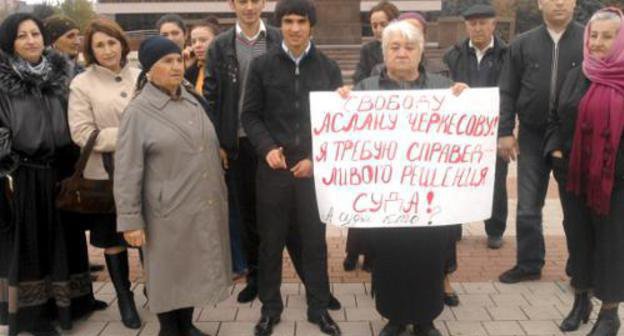 СВОБОДУ
АСЛАНУ ЧЕРКЕСОВУ!
Я ТРЕБУЮ СПРАВЕД-
ЛИВОГО РЕШЕНИЯ
СУДА!
А судьи кто?